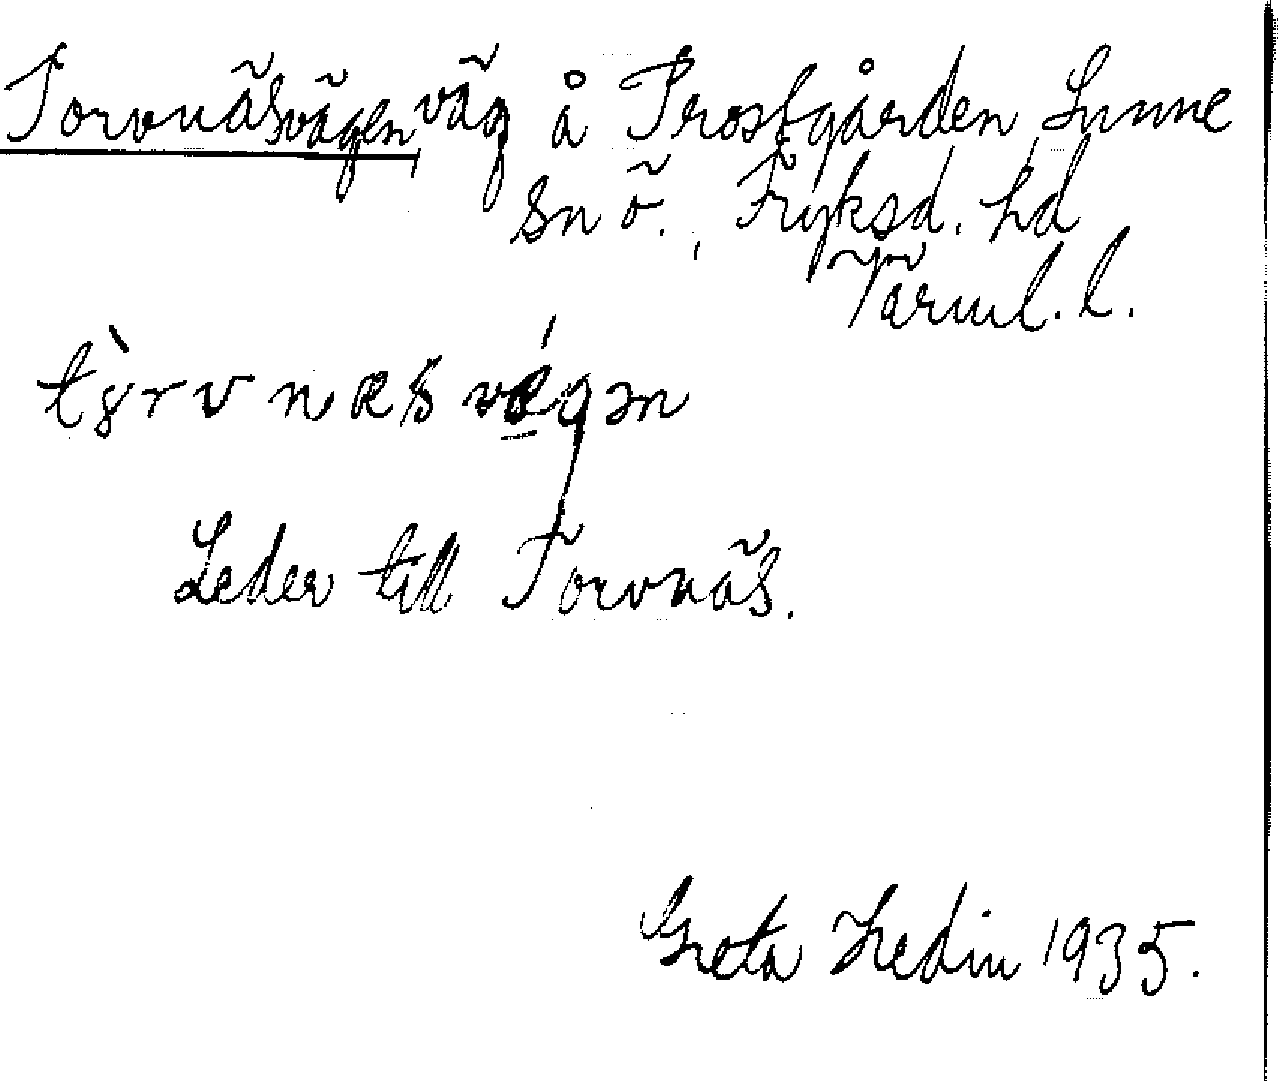 Torvnäsvägen väg å Prostgården, Sunne
sn ö., Fryksd. hd
Värml. l.
Leder till Torvnäs.
Greta Hedin 1935.